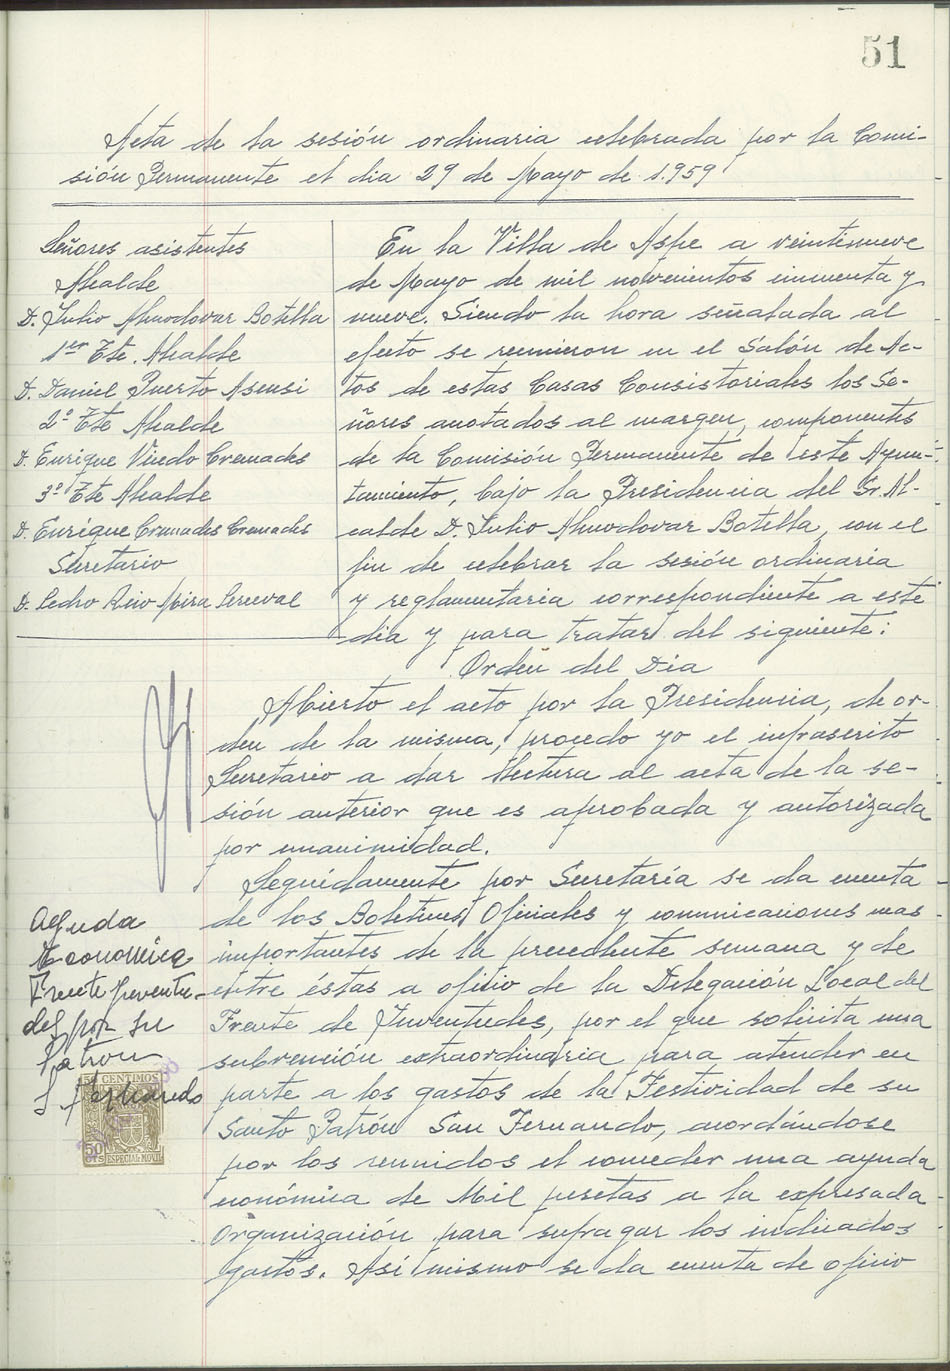 51
Acta de la sesión ordinaria celebrada por la Comi-
sión Permanente el dia 29 de Mayo de 1.959
Señores asistentes
Alcalde
D. Julio Almodovar Botella
1er Tte. Alcalde
D. Daniel Puerto Asensi
2º Tte Alcalde
D. Enrique Vicedo Cremades
3º Tte Alcalde
D. Enrique Cremades Cremades
Secretario
D. Pedro Mira Perceval
En la Villa de Aspe a veintinueve
de Mayo de mil novecientos cincuenta y
nueve. Siendo la hora señalada al
efecto se reunieron en el Salón de Ac-
tos de estas Casas Consistoriales los Se-
ñores anotados al margen, componentes
de la Comisión Permanente de este Ayun-
tamiento, bajo la Presidencia del Sr. Al-
calde D. Julio Almodovar Botella, con el
fin de celebrar la sesión ordinaria
y reglamentaria correspondiente a este
dia y para tratar del siguiente:
Orden del Dia
Abierto el acto por la Presidencia, de or-
den de la misma, procedo yo el infrascrito
Secretario a dar lectura al acta de la se-
sión anterior que es aprobada y autorizada
por unanimidad.
Seguidamente por Secretaría se da cuenta
de los Boletines Oficiales y comunicaciones mas
importantes de la precedente semana y de
entre éstas a oficio de la Delegación Local del
Frente de Juventudes, por el que solicita una
subvención extraordinaria para atender en
parte a los gastos de la Festividad de su
Santo Patrón San Fernando, acordándose
por los reunidos el conceder una ayuda
económica de Mil pesetas a la expresada
Organización para sufragar los indicados
gastos. Así mismo se da cuenta de oficio
Ayuda
Economica
Frente Juventu-
des por su
Patron
S. Fernando
50 CENTIMOS
50
CTS
ESPECIAL MOVIL